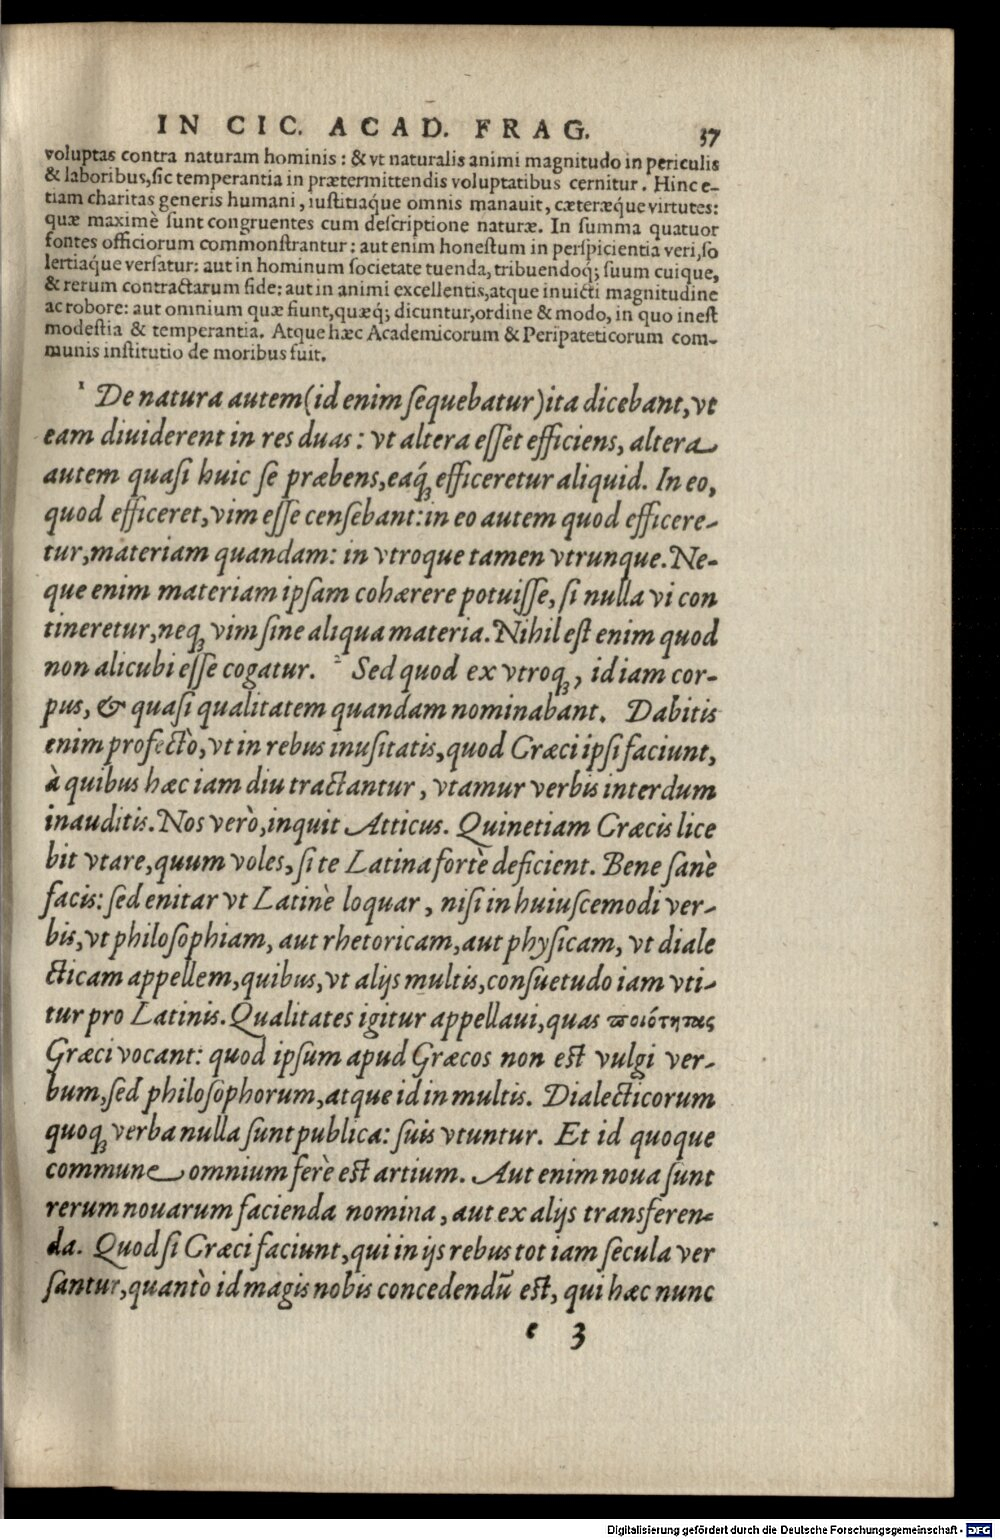 IN CIC. ACAD. FRAG. 37
voluptas contra naturam hominis: & vt naturalis animi magnitudo in periculis
& laboribus,sic temperantia in prætermittendis voluptatibus cernitur. Hinc e-
tiam charitas generis humani, iustitiaque omnis manauit, cæteræque virtutes:
quæ maximè sunt congruentes cum descriptione naturæ. In summa quatuor
fontes officiorum commonstrantur: aut enim honestum in perspicientia veri,so
lertiaque versatur: aut in hominum societate tuenda, tribuendoq́; suum cuique,
& rerum contractarum fide: aut in animi excellentis,atque inuicti magnitudine
ac robore: aut omnium quæ fiunt,quæq́; dicuntur,ordine & modo, in quo inest
modestia & temperantia. Atque hæc Academicorum & Peripateticorum com-
munis institutio de moribus fuit.
¹ De natura autem(id enim sequebatur)ita dicebant,vt
eam diuiderent in res duas: vt altera esset efficiens, altera
autem quasi huic se præbens,eaq́ꝫ efficeretur aliquid. In eo,
quod efficeret,vim esse censebant:in eo autem quod efficere-
tur,materiam quandam: in vtroque tamen vtrunque.Ne-
que enim materiam ipsam cohærere potuisse, si nulla vi con
tineretur,neqꝫ vim sine aliqua materia.Nihil est enim quod
non alicubi esse cogatur. ² Sed quod ex vtroqꝫ, id iam cor-
pus, & quasi qualitatem quandam nominabant. Dabitis
enim profectò,vt in rebus inusitatis,quod Græci ipsi faciunt,
à quibus hæc iam diu tractantur, vtamur verbis interdum
inauditis.Nos verò,inquit Atticus. Quinetiam Græcis lice
bit vtare,quum voles,si te Latina fortè deficient. Bene sanè
facis: sed enitar vt Latinè loquar, nisi in huiuscemodi ver-
bis,vt philosophiam, aut rhetoricam,aut physicam, vt diale
cticam appellem,quibus,vt alijs multis,consuetudo iam vti-
tur pro Latinis.Qualitates igitur appellaui,quas ποιότητας
Græci vocant: quod ipsum apud Græcos non est vulgi ver-
bum,sed philosophorum,atque id in multis. Dialecticorum
quoqꝫ verba nulla sunt publica: suis vtuntur. Et id quoque
commune omnium ferè est artium. Aut enim noua sunt
rerum nouarum facienda nomina, aut ex alijs transferen-
da. Quod si Græci faciunt,qui in ijs rebus tot iam secula ver
santur,quantò id magis nobis concedendū est, qui hæc nunc
e 3
Digitalisierung gefördert durch die Deutsche Forschungsgemeinschaft - DFG